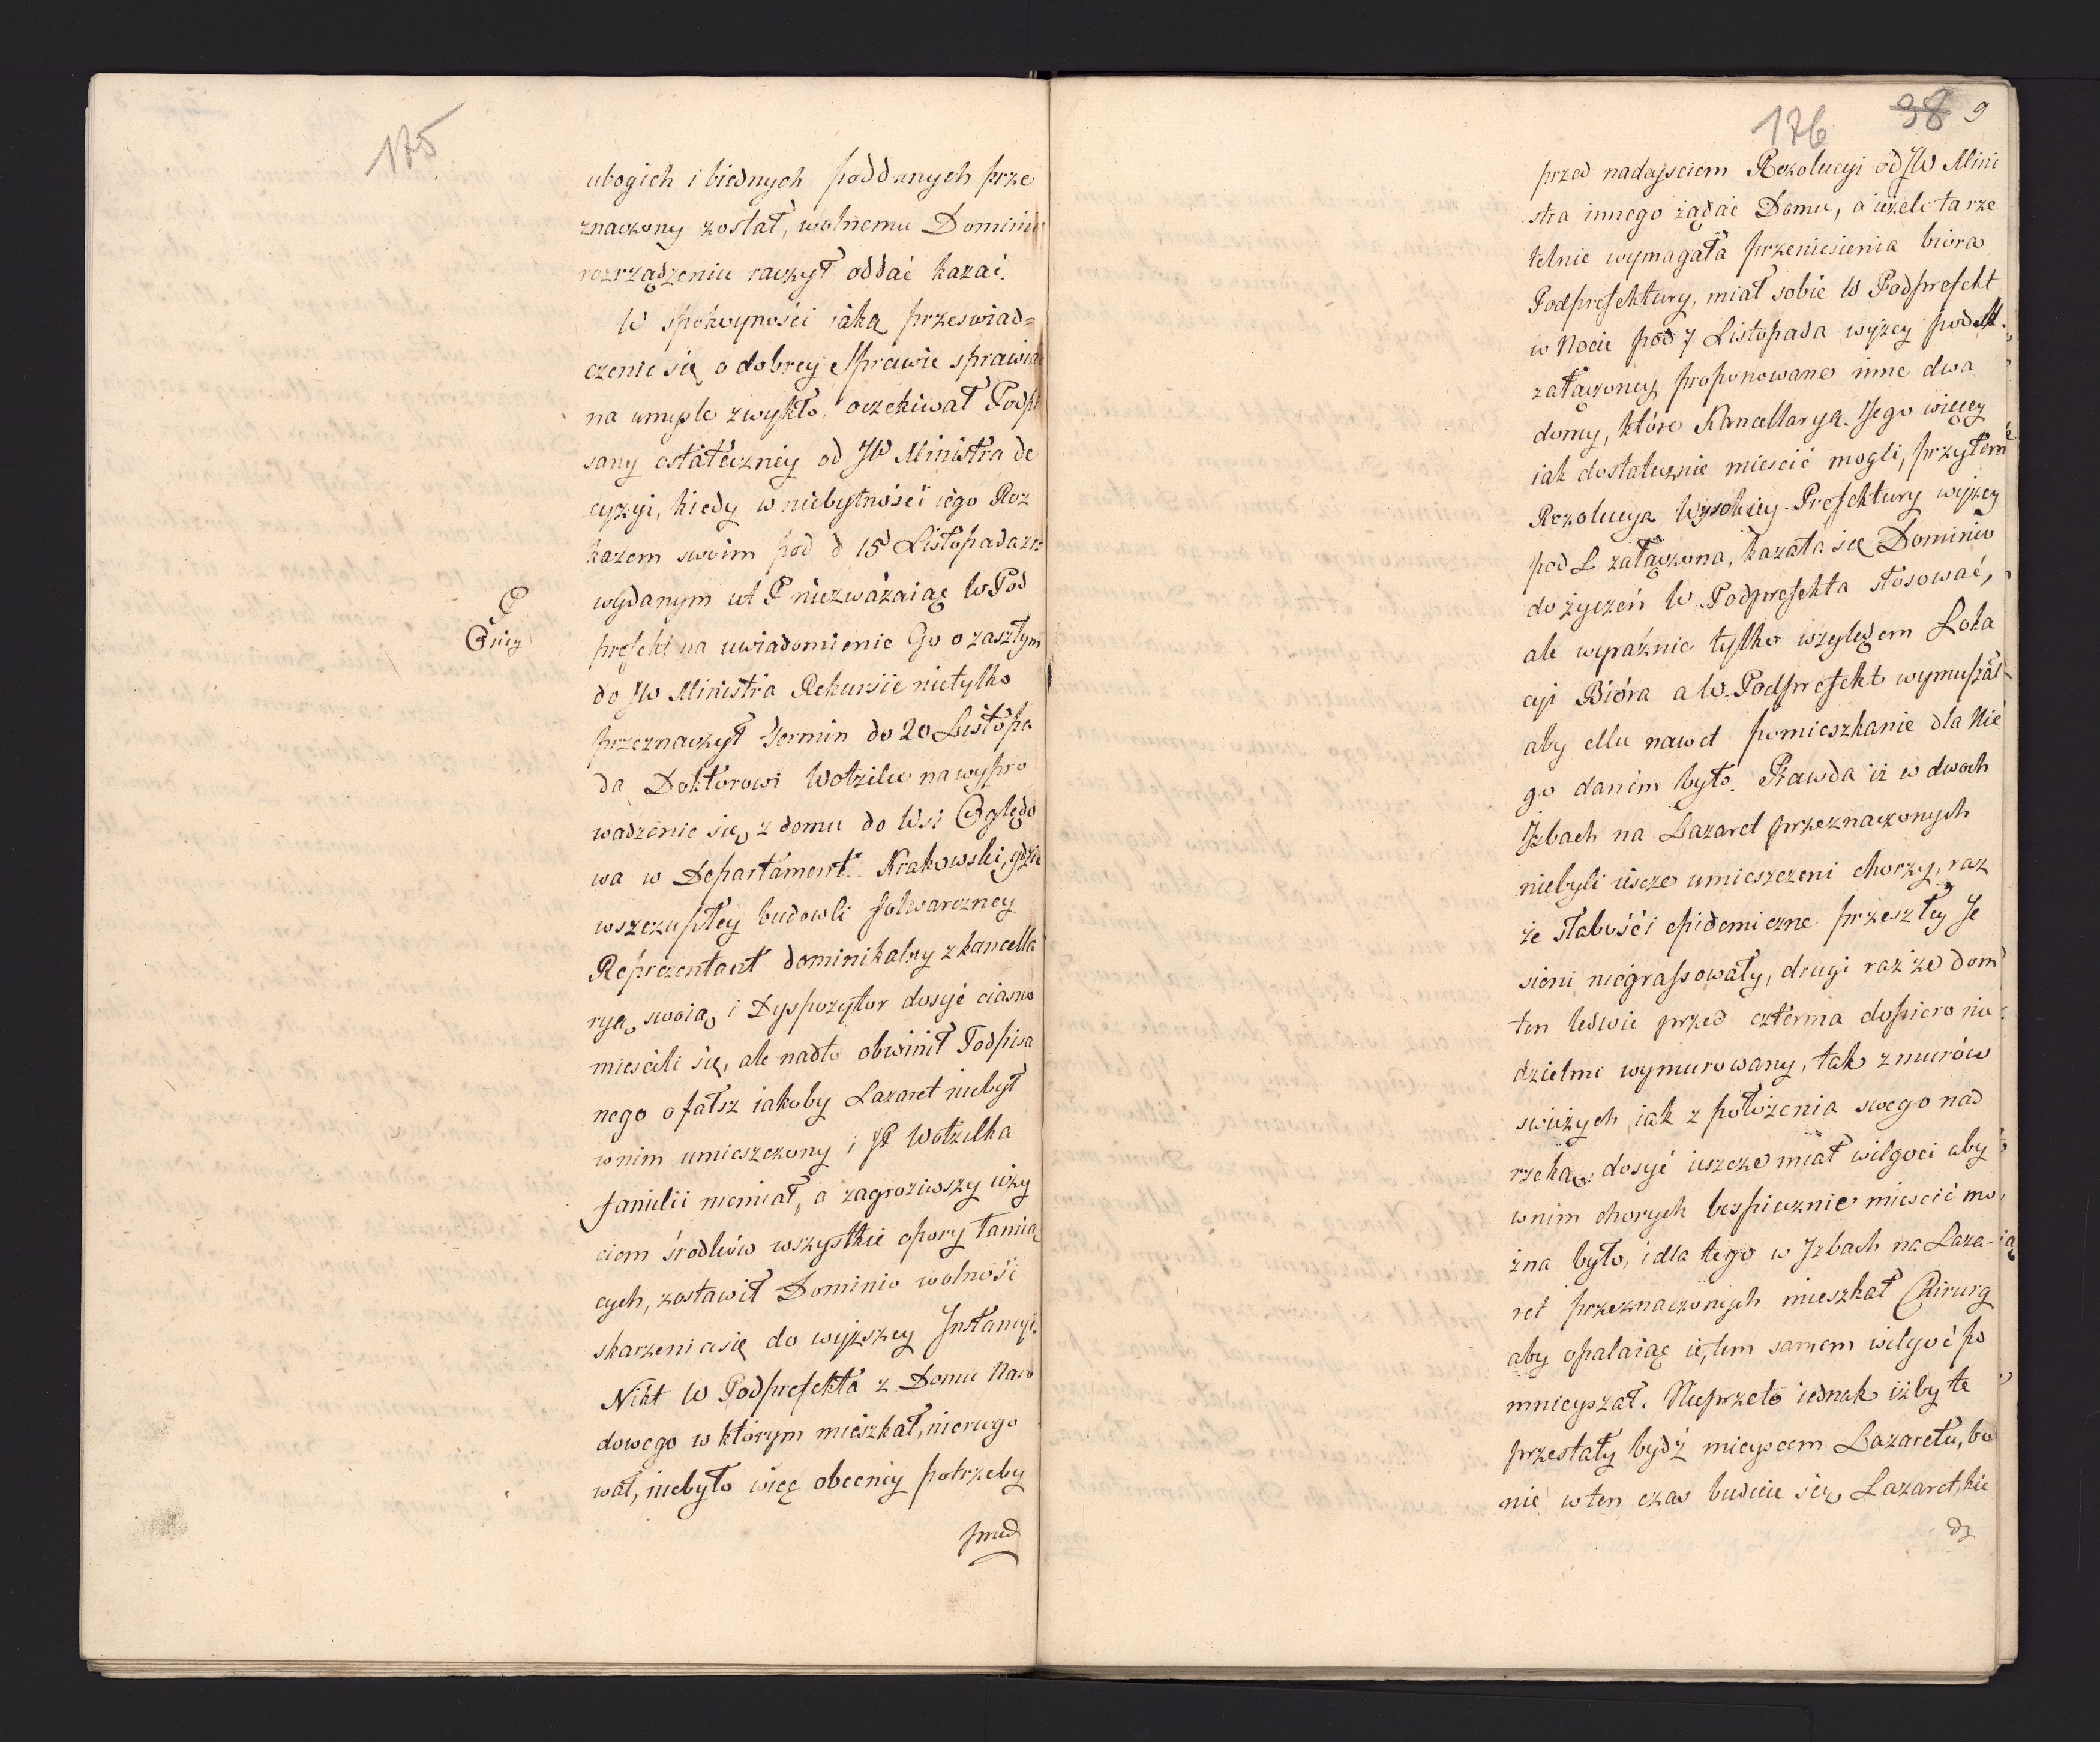 175
ubogich i biednych poddanych prze
znaczony został, wolnemu Dominiu
rozrządzeniu raczył oddać kazać.
W spokoyności iaką przeswiad=
czenie się o dobrey Sprawie sprawia
na umyśle zwykło, oczekiwał Podpi
sany ostateczney od JW Ministra de
cyzyi, kiedy w niebytności iego Roz
kazem swoim pod d 15 Listopada
wydanym ut P niezważaiąc W Pod
P
Oryg
prefekt na uwiadomienie Go o zaszłym
do JW Ministra Rekursie nietylko
przeznaczył Termin do 20 Listopa
da Doktorowi Wotzilce na wypro
wadzenie się z domu do Wsi Oględo
wa w Departament. Krakowski, gdzie
wszczupłey budowli folwarczney
Reprezentant dominikalny z kancella
ryą swoią i Dyspozytor dosyć ciasno
miescili się, ale nadto obwinił Podpisa
nego o fałsz iakoby Lazaret niebył
wnim umieszczony i JP Wotzilka
familii niemiał, a zagroziwszy uży
ciem środków wszystkie opory łamią
cych, zostawił Dominio wolność
skarzenia się do wyższey Jnstancyi.
Nikt W Podprefekta z Domu Naro
dowego w którym mieszkał, nierugo
wał, niebyło więc obecniy potrzeby
przed
176
38 9
przed nadayściem Rezolucyi od JW Mini
stra innego żądać Domu, a ieżeli ta rze
telnie wymagała przeniesienia biora
Podprefektury, miał sobie W Podprefekt
w Nocie pod 7 Listopada wyżey pod M.
załączoney proponowane inne dwa
domy, które Kancellaryą Jego więcey
iak dostatecznie mieścić mogli, przytem
Rezolucya Wysokiey Prefektury wyżey
pod L załączona, kazała się Dominio
do życzeń W Podprefekta stosować,
ale wyraźnie tylko względem Loka
cyi Bióra a W. Podprefekt wymuszał
aby Mu nawet pomieszkanie dla Nie
go danem było. Prawda iż w dwoch
Jzbach na Lazaret przeznaczonych
niebyli ieszcze umieszczeni chorzy, raz
że słabości epidemiczne przeszłey Je
sieni niegrassowały, drugi raz że dom
ten ledwie przed czterma dopiero nie
dzielmi wymurowany, tak z murów
swieżych iak z położenia swego nad
rzeką dosyć ieszcze miał wilgoci aby
wnim chorych bespiecznie mieścić mo
żna było, i dla tego w Jzbach na Laza-
ret przeznaczonych mieszkał Chirurg
aby opalaiąc ie, tem samem wilgoć po
mnieyszał. Nieprzeto iednak iżby te
przestały bydź mieyscem Lazaretu, bo
nie wten czas buduie się Lazaret, kie
dy